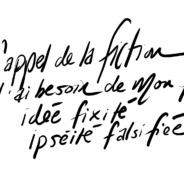 'appel de la fiction
'ai besoin de mon
idée fixité
ipséité falsifiée